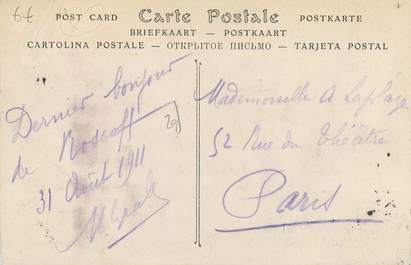 66
POST CARD Carte Postale POSTKARTE
BRIEFKAART — POSTKAART
CARTOLINA POSTALE — ОТКРЫТОЕ ПИСЬМО — TARJETA POSTAL
Dernier bonjour
de Roscoff
31 Août 1911
20
Mademoiselle A Laplage
52 Rue du Théâtre
Paris